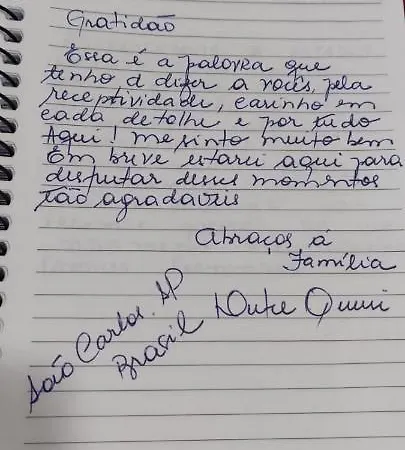 Gratidão
Essa é a palovra que
tenho d dizer a vocês, pela
receptividade, carinho em
cada detalhe e por tudo
Aqui! me sinto muito bem
Em breve estarei aqui para
disfrutar desses momentos
tão agradaveis
Abraços á
Família
São Carlos. SP
Brasil